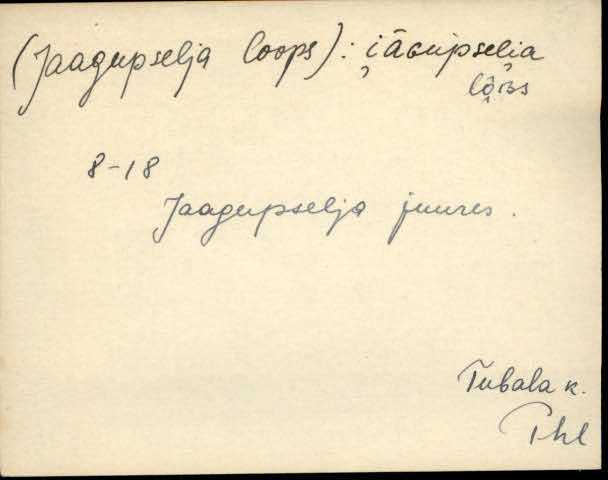 (Jaagupselja loops): i̮āGupseli̮a
lō̬Bs
8-18
Jaagupselja juures.
Tubala k.
Phl